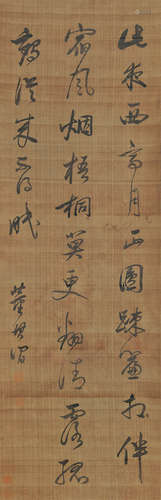 此夜西亭月正圓踈簾相伴
宿風烟梧桐莫更翻清露孤
鶴從来不得眠
董其昌